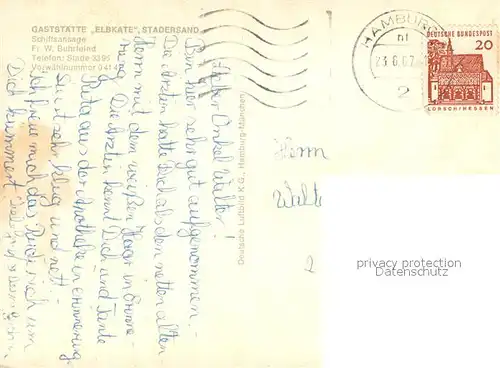 GASTSTÄTTE „ELBKATE", STADERSAND
Schiffsansage
Fr. W. Buhrfeind
Telefon: Stade 3395
Vorwählnummer 04141
Deutsche Luftbild K.G., Hamburg-München
HAMBURG
23.6.67
2
DEUTSCHE BUNDESPOST
20
LORSCH/HESSEN
Lieber Onkel Walter!
Bin hier sehr gut aufgenommen.
Die Ärztin hatte Dich als den netten alten
Herrn mit dem weißen Haar in Erinne-
rung. Die Ärztin kennt Dich und Tante
Ruta aus der Apotheke in Erinnerung
Sie ist sehr klug und nett.
Ich freue mich das Rudi sich um
Dich kümmert
Herrn
privacy protection
Datenschutz